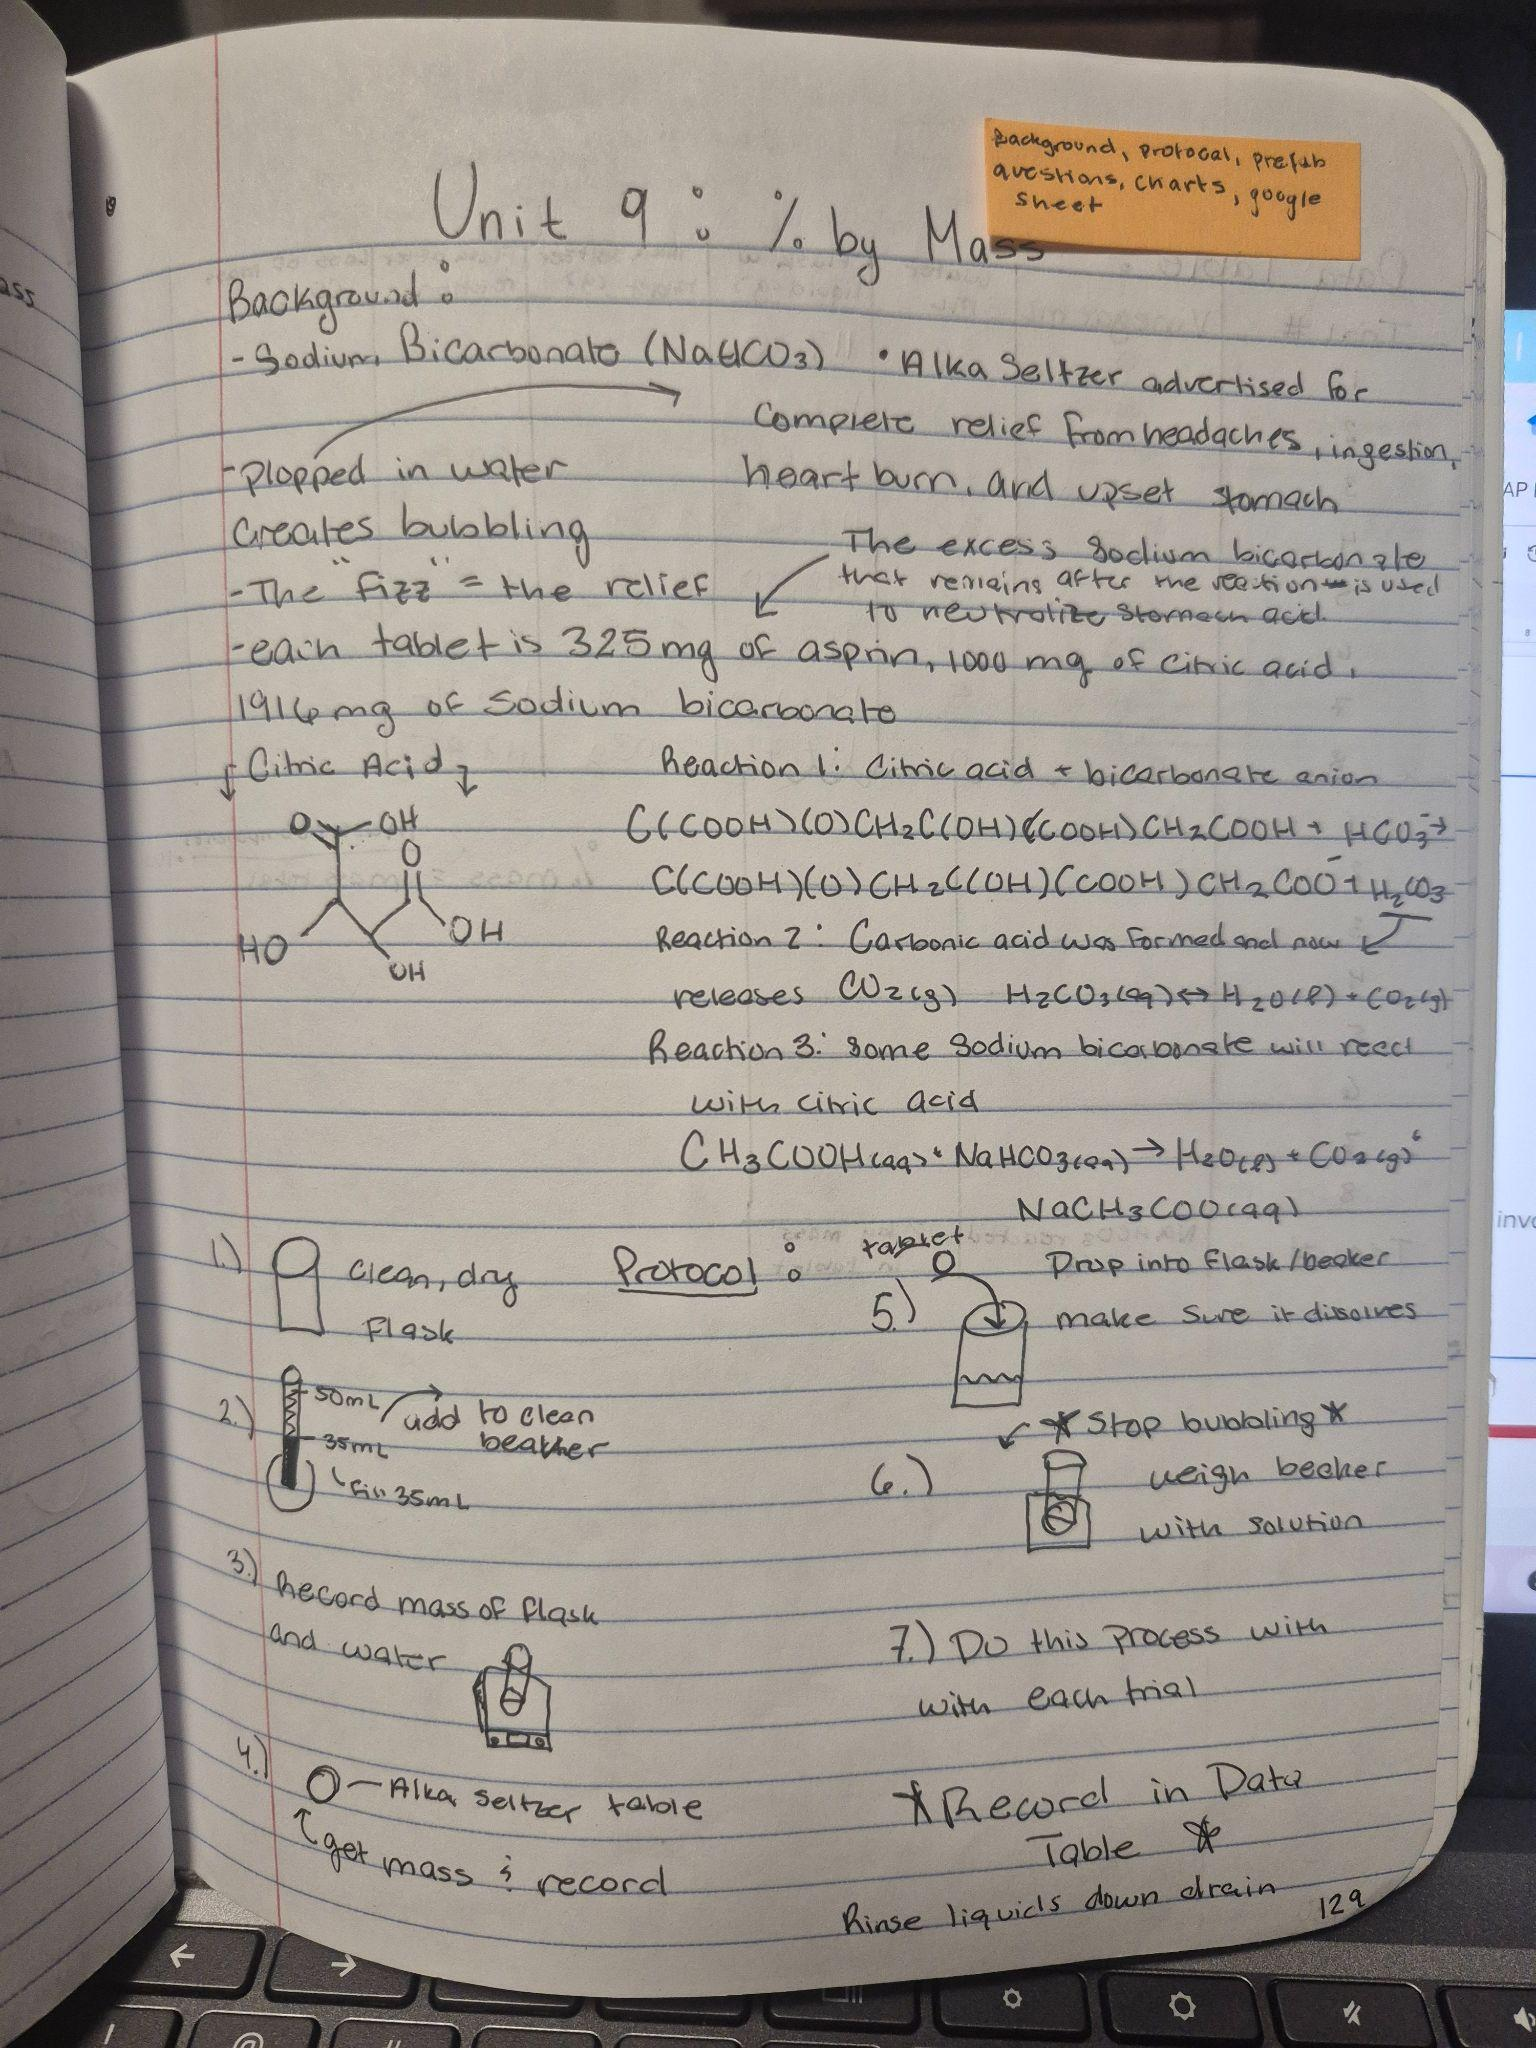 Background, protocal, prelab
questions, charts, google
sheet
Unit 9: % by Mass
Background:
- Sodium Bicarbonate (NaHCO3)
• Alka Seltzer advertised for
complete relief from headaches, ingestion,
heart burn, and upset stomach
- plopped in water
creates bubbling
- The "fizz" = the relief
The excess sodium bicarbonate
that remains after the reaction is used
to neutralize stomach acid.
- each tablet is 325 mg of asprin, 1000 mg of citric acid,
1916 mg of sodium bicarbonate
Citric Acid
O OH
O
HO OH
OH
Reaction 1: Citric acid + bicarbonate anion
C(COOH)(O)CH2C(OH)(COOH)CH2COOH + HCO3- →
C(COOH)(O)CH2C(OH)(COOH)CH2COO- + H2CO3
Reaction 2: Carbonic acid was formed and now
releases CO2(g) H2CO3(aq) ↔ H2O(l) + CO2(g)
Reaction 3: Some Sodium bicarbonate will react
with citric acid
CH3COOH(aq) + NaHCO3(aq) → H2O(l) + CO2(g) +
NaCH3COO(aq)
Protocol:
1.) Clean, dry
Flask
2.) 50mL add to clean
35mL beakher
Fill 35mL
3.) Record mass of flask
and water
4.) Alka Seltzer table
get mass & record
tablet
5.) Drop into flask/beaker
make sure it dissolves
* Stop bubbling *
6.) weigh beaker
with solution
7.) Do this process with
with each trial
* Record in Data
Table *
Rinse liquids down drain
129